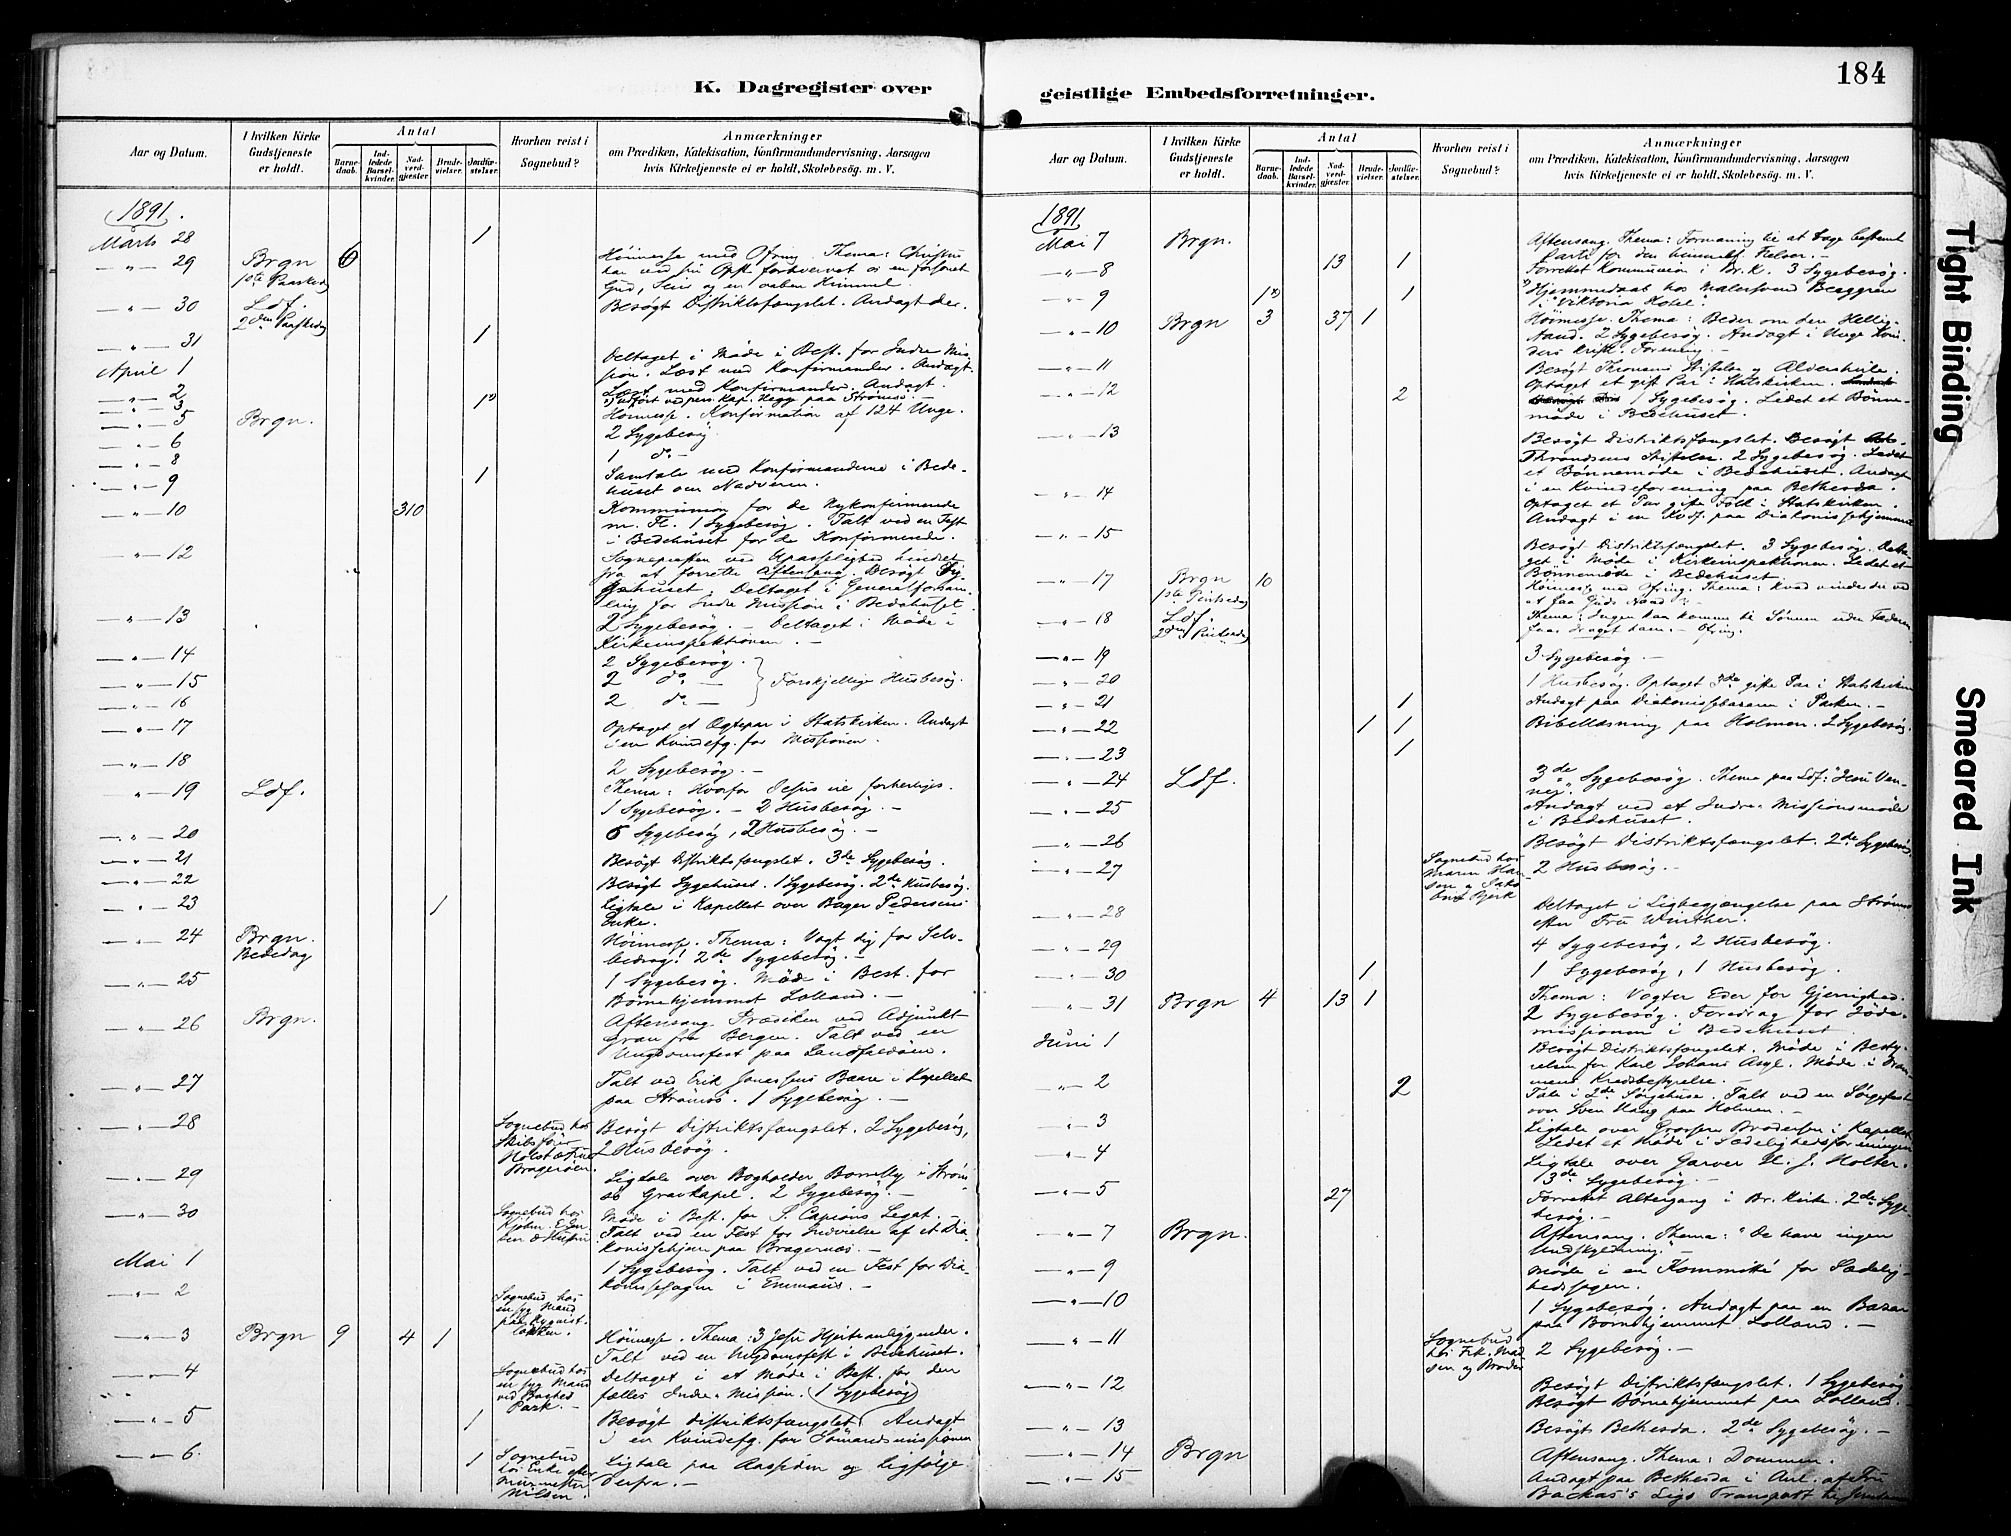 184
K. Dagregister over
geistlige Embedsforretninger.
Aar og Datum.
I hvilken Kirke Gudstjeneste er holdt.
Antal
Barnedaab.
Indledede Barselkvinder.
Nadverdgjester.
Brudevielser.
Jordfæstelser.
Hvorhen reist i Sognebud?
Anmærkninger
om Prædiken, Katekisation, Konfirmandundervisning, Aarsagen
hvis Kirketjeneste ei er holdt, Skolebesøg. m. V.
1891.
Marts 28 1
29 Brgn 6 Høimesse med Ofring. Thema: Christus
1ste Paaskedag
30 Ldf. Besøgt Distriktsfængslet. Andagt der.
2den Paaskedag
31 1
April 1 Deltaget i Møde i Best. for Indre Mis-
sion. Læst med Konfirmander. Andagt.
2 Læst med Konfirmander. Andagt.
3
5 Brgn. Høimesse. Konfirmation af 124 Unge.
6 2 Sygebesøg
8 1 do
9 1 Samtale med Konfirmanderne i Bede-
huset om Nadveren.
10 310 Kommunion for de Nykonfirmerede
m. Fl. 1 Sygebesøg. Talt ved en Fest
i Bedehuset for de Konfirmerede.
12 fra at forrette Aftensang. Besøgt Sy-
gehuset. Deltaget i Generalforsam-
ling for Indre Mission i Bedehuset.
13 2 Sygebesøg. Deltaget i Møde i
Kirkeinspektionen.
14 2 Sygebesøg.
15 2 do Forskjellige Husbesøg.
16 2 do
17 Optaget et Ægtepar i Statskirken. Andagt
i en Kvindefg. for Missionen.
18 2 Sygebesøg.
19 Ldf. Thema: Hvorfor Jesus vil forherliges.
1 Sygebesøg. 2 Husbesøg.
20 6 Sygebesøg, 2 Husbesøg.
21 Besøgt Distriktsfængslet. 3de Sygebesøg.
22 Besøgt Sygehuset. 1 Sygebesøg. 2de Husbesøg.
23 1 Ligtale i Kapellet over Bager Pedersens
Enke.
24 Brgn. Høimesse. Thema: Vogt dig for Selv-
Bededag bedrag! 2de Sygebesøg.
25 1 Sygebesøg. Møde i Best. for
Børnehjemmet Lolland.
26 Brgn. Aftensang. Prædiken ved Adjunkt
Gran fra Bergen. Talt ved en
Ungdomsfest paa Landfaldøen.
27 Talt ved Erik Jonassens Baare i Kapellet
paa Strømsø. 1 Sygebesøg.
28 Sognebud hos Besøgt Distriktsfængslet. 2 Sygebesøg,
2 Husbesøg.
29 Ligtale over Bogholder i Strøms-
ø Gravkapel. 2 Sygebesøg.
30 Sognebud hos Møde i Best. for Legat.
Talt ved en Fest for Indvielse af et Dia-
konissehjem paa Bragernæs.
Mai 1 1 Sygebesøg. Talt ved en Fest for Dia-
konissesagen i Emmaus.
2 Sognebud hos
en syg Mand
3 Brgn 9 4 1 Høimesse. Thema: 3 Jesu Hjerteanliggender.
Talt ved en Ungdomsfest i Bedehuset.
4 Sognebud hos Deltaget i et Møde i Best. for den
en syg Mand fælles Indre-Mission. (1 Sygebesøg)
ved
Park.
5 1 Besøgt Distriktsfængslet. Andagt
i en Kvindefg. for Sømandsmissionen
6 1 Sognebud Ligtale paa Aassiden og Ligfølge
hos Enke efter derfra.
Murmester
Nilsen.
Aar og Datum.
I hvilken Kirke Gudstjeneste er holdt.
Antal
Barnedaab.
Indledede Barselkvinder.
Nadverdgjester.
Brudevielser.
Jordfæstelser.
Hvorhen reist i Sognebud?
Anmærkninger
om Prædiken, Katekisation, Konfirmandundervisning, Aarsagen
hvis Kirketjeneste ei er holdt, Skolebesøg. m. V.
1891
Mai 7 Brgn. Aftensang. Thema: Formaning til at tage bestemt
Parti for den himmelske Frelser.
8 13 1 Forrettet Kommunion i Br. K. 3 Sygebesøg.
9 1x) 1 Hjemmedaab hos Malersvend Berggren
i "Viktoria Hotel".
10 Brgn 3 37 1 Høimesse. Thema: Beder om den Hellig-
Aand. 2 Sygebesøg. Andagt i Unge Kvin-
ders kristl. Forening.
11 Besøgt Thronsens Stiftelse og Aldershvile.
12 2 Optaget et gift Par i Statskirken.
1 Sygebesøg. Ledet et Bønne-
møde i Bedehuset.
13 Besøgt Distriktsfængslet. Besøgt
Throndsens Stiftelse. 2 Sygebesøg. Ledet
et Bønnemøde i Bedehuset. Andagt
i en Kvindeforening paa Bethesda.
14 Optaget et Par gifte Folk i Statskirken.
Andagt i en Kvdf. paa Diakonissehjemmet
15 Besøgt Distriktsfængslet. 3 Sygebesøg. Delta-
get i Møde i Kirkeinspektionen. Ledet et
Bønnemøde i Bedehuset.
17 Brgn 10 Høimesse med Ofring. Thema: Hvad vinder du ved
1ste Pintsedag at faa Guds Aand?
18 Ldf. Thema: Ingen kan komme til Sønnen uden Faderen
2den Pintsedag faar draget ham. Ofring.
19 3 Sygebesøg.
20 1 Husbesøg. Optaget 3de gifte Par i Statskirken
21 1 Andagt paa Diakonissebasaren i Parken.
22 1 1 Bibellæsning paa Holmen. 2 Sygebesøg.
23 1
24 Ldf. 3de Sygebesøg. Thema paa Ldf: "Jesu Ven-
25 Andagt ved et Indre-Missionsmøde
i Bedehuset.
26 Besøgt Distriktsfængslet. 2de Sygebesøg.
27 Sognebud hos 2 Husbesøg.
Maren Han-
sen og Jako-
28 Deltaget i Ligbegjængelse paa Strømsø
efter Fru Winther.
29 4 Sygebesøg, 2 Husbesøg.
30 1 1 Sygebesøg, 1 Husbesøg.
31 Brgn 4 13 1 Thema: Vogter Eder for Gjerrighed.
2 Sygebesøg. Foredrag for Jøde-
missionen i Bedehuset.
Juni 1 Besøgt Distriktsfængslet. Møde i Besty-
relsen for Karl Johans Asyl. Møde i Dram-
mens Kredsbestyrelse.
2 2 Tale i 2de Sørgehuse. Talt ved en Sørgefest
over Sven Haug paa Holmen.
3 Ligtale over Grosserer Brodersen i Kapellet
Ledet et Møde i Sædelighedsforeningen
4 Ligtale over Garver H. J. Holter.
3de Sygebesøg.
5 27 Forrettet Altergang i Br. Kirke. 2de Syge-
besøg.
7 Brgn. Aftensang. Thema: "De have ingen
Undskyldning."
9 Møde i en Kommité for Sædelig-
hedssagen.
10 1 Sygebesøg. Andagt paa en Bazar
paa Børnehjemmet Lolland.
11 Sognebud 2 Sygebesøg.
hos Frk. Mad-
sen og Broder
12 Besøgt Distriktsfængslet. 1 Sygebesøg
Besøgt Børnehjemmet paa Lolland.
13 Besøgt Bethesda. 2de Sygebesøg.
14 Brgn Aftensang. Thema: Dommen.
15 Andagt paa Bethesda i Anl. af Fru
Backer's Ligs Transport til
Tight Binding
Smeared Ink